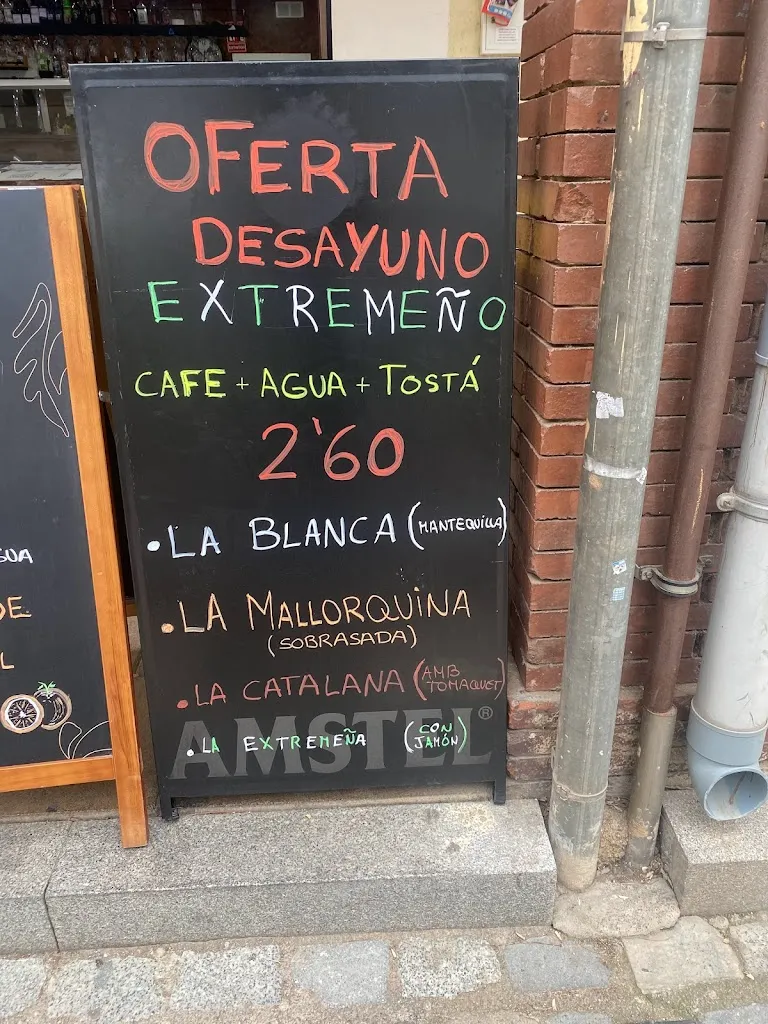 OFERTA
DESAYUNO
EXTREMEÑO
CAFE + AGUA + TOSTÁ
2'60
• LA BLANCA (MANTEQUILLA)
• LA MALLORQUINA
(SOBRASADA)
• LA CATALANA (AMB TOMAQUET)
AMSTEL®
• LA EXTREMEÑA (CON JAMÓN)
GUA
DE
L